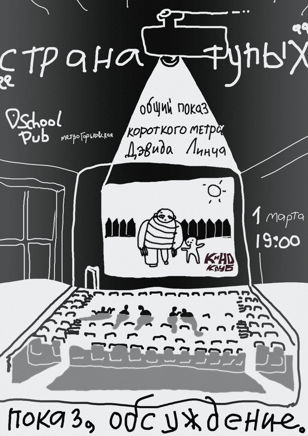 "страна тупых"
общий показ
короткого метра
Дэвида Линча
School
Pub
метро Горьковская
1 марта
19:00
КИНО
КЛУБ
показ, обсуждение.